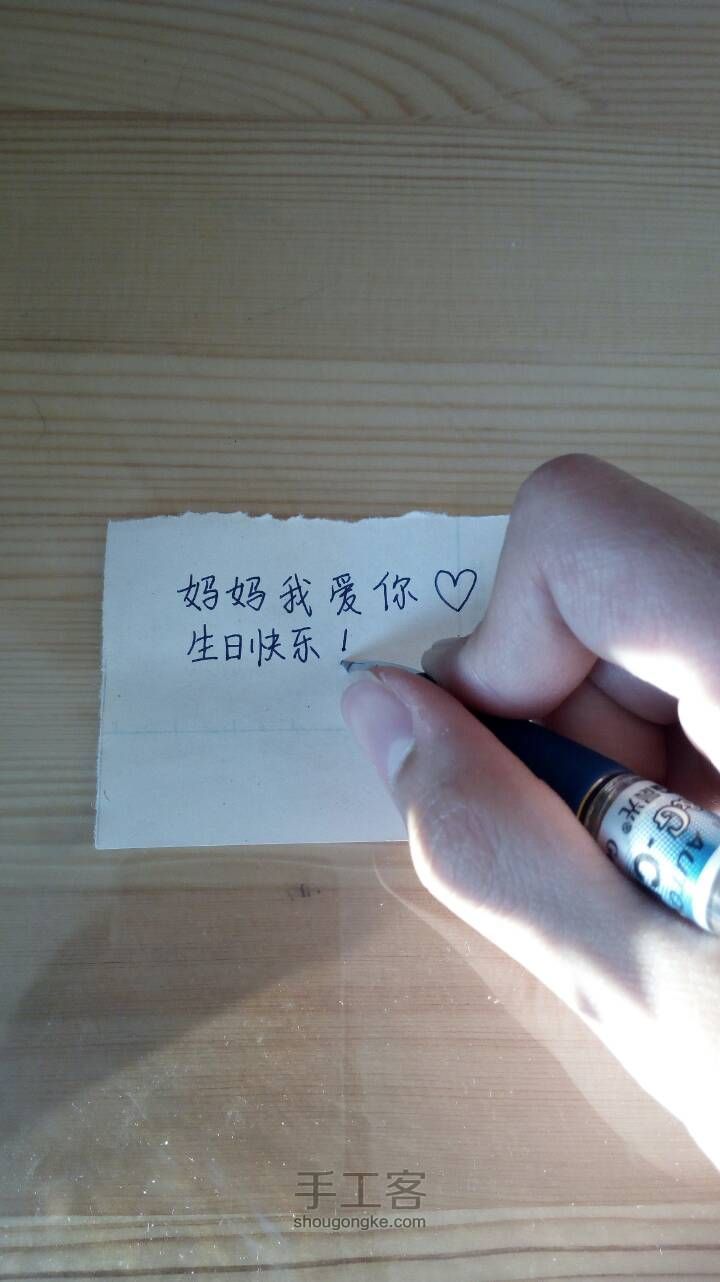 妈妈我爱你♡
生日快乐！
手工客
shougongke.com